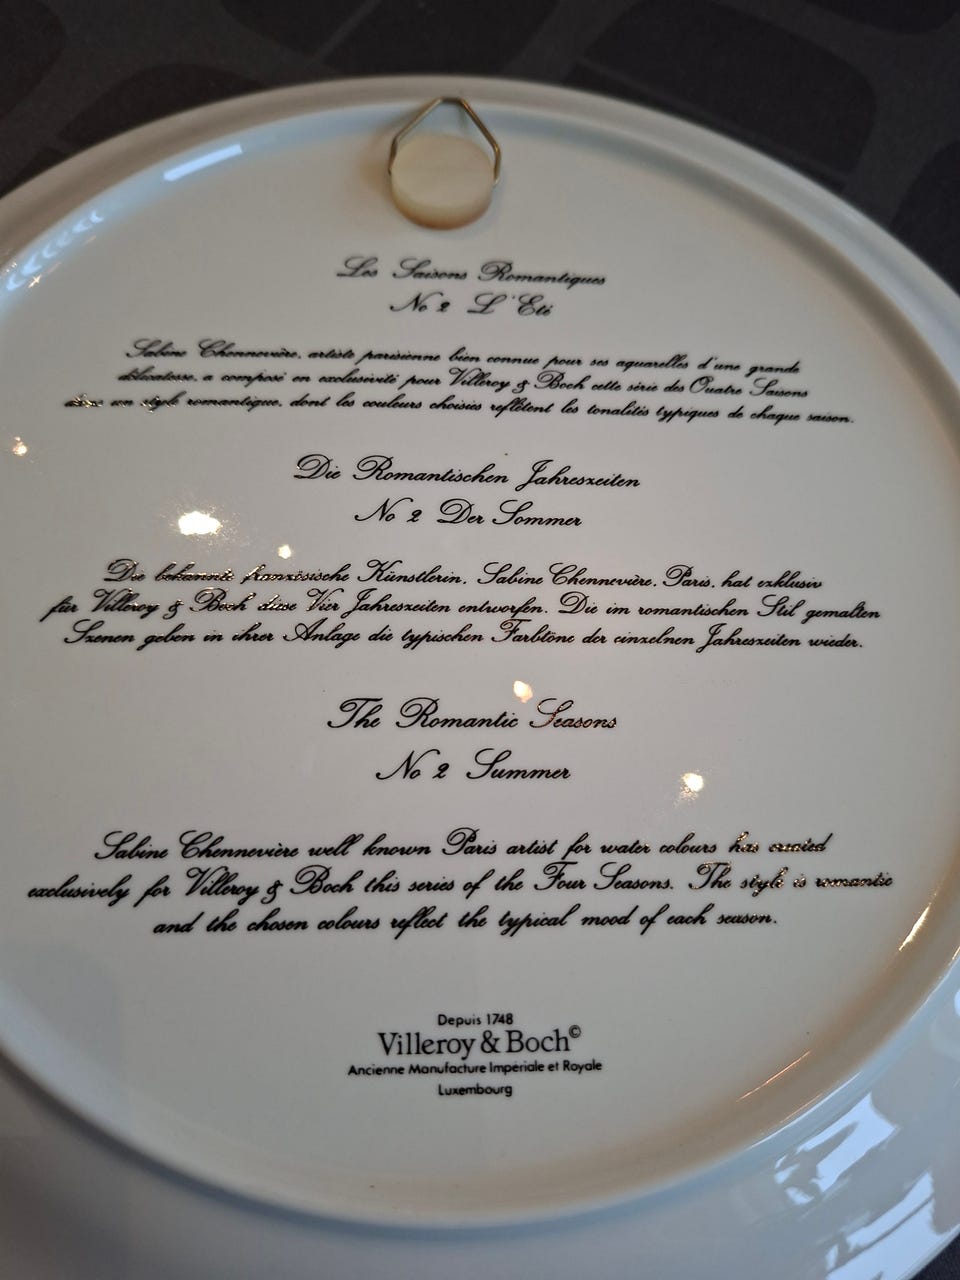 Les Saisons Romantiques
No 2 L'Eté
Sabine Chennevière, artiste parisienne bien connue pour ses aquarelles d'une grande
délicatesse, a composé en exclusivité pour Villeroy & Boch cette série des Quatre Saisons
dans un style romantique, dont les couleurs choisies reflètent les tonalités typiques de chaque saison.
Die Romantischen Jahreszeiten
No 2 Der Sommer
Die bekannte französische Künstlerin, Sabine Chennevière, Paris, hat exklusiv
für Villeroy & Boch diese Vier Jahreszeiten entworfen. Die im romantischen Stil gemalten
Szenen geben in ihrer Anlage die typischen Farbtöne der einzelnen Jahreszeiten wieder.
The Romantic Seasons
No 2 Summer
Sabine Chennevière well known Paris artist for water colours has created
exclusively for Villeroy & Boch this series of the Four Seasons. The style is romantic
and the chosen colours reflect the typical mood of each season.
Depuis 1748
Villeroy & Boch©
Ancienne Manufacture Impériale et Royale
Luxembourg